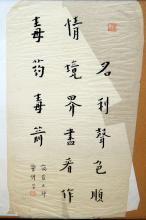 名利聲色順
情境界盡看作
毒药毒箭